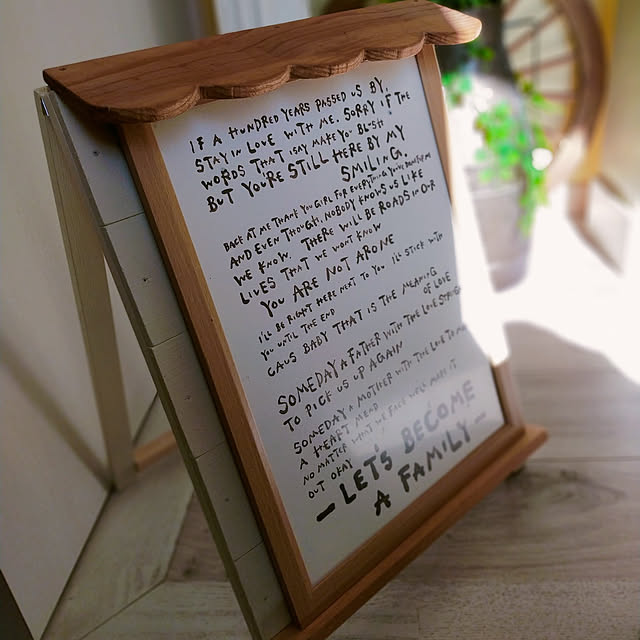 IF A HUNDRED YEARS PASSED US BY,
STAY IN LOVE WITH ME. SORRY IF THE
WORDS THAT I SAY MAKE YOU BLUSH
BUT YOU'RE STILL HERE BY MY
SMILING.
BACK AT ME THANK YOU GIRL FOR EVERYTHING YOU'VE
AND EVEN THOUGH, NOBODY KNOWS US LIKE
WE KNOW THERE WILL BE ROADS IN OUR
LIVES THAT WE WON'T KNOW
YOU ARE NOT ARONE
I'LL BE RIGHT HERE NEXT TO YOU I'LL STICK WITH
YOU UNTIL THE END
CAUS BABY THAT IS THE MEANING
OF LOVE
SOMEDAY A FATHER WITH THE LOVE
TO PICK US UP AGAIN
SOMEDAY A MOTHER WITH THE LOVE TO
A HEART MEND
NO MATTER WHAT WE FACE WE'LL MAKE IT
OUT OKAY
— LET'S BECOME
A FAMILY —